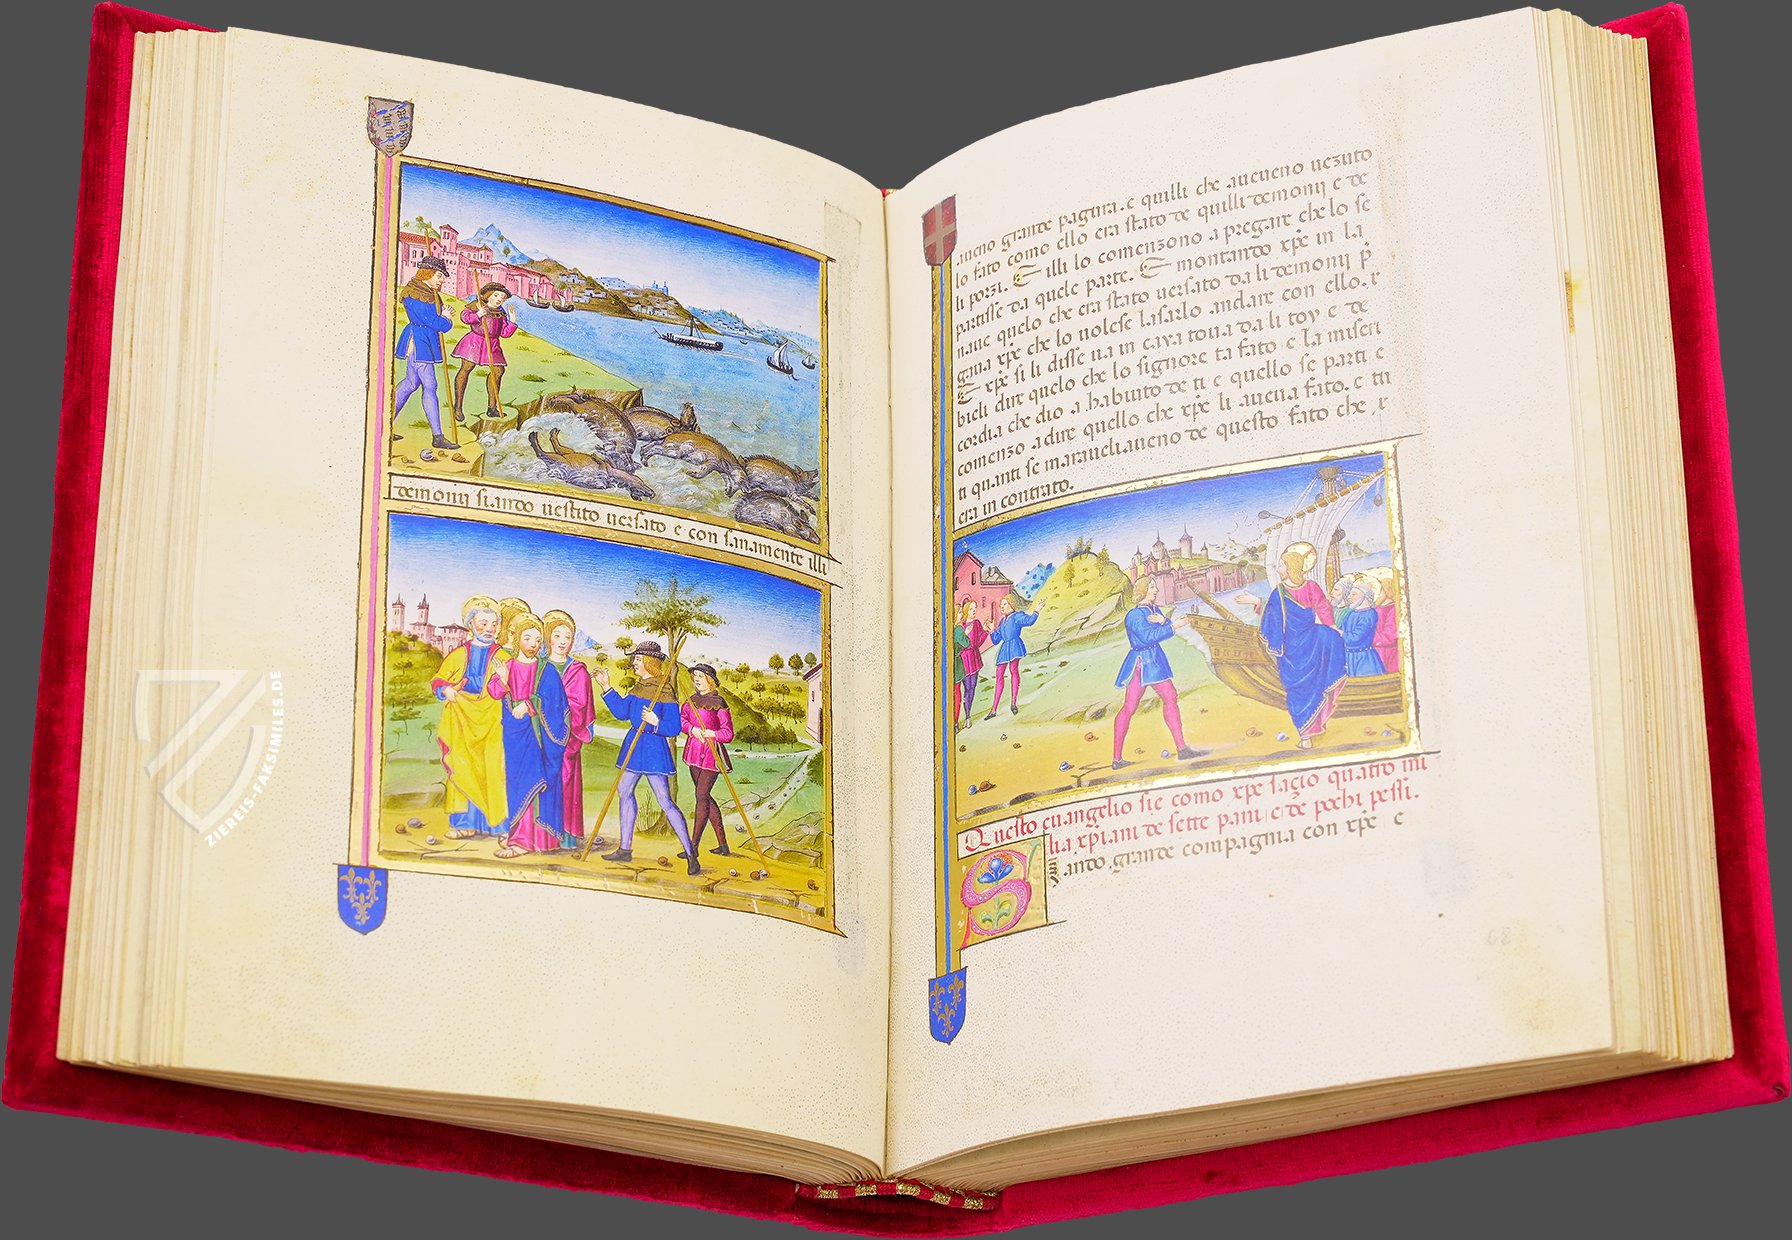 demonii stando vestito versato e con sanamente illi
aueno grande pagura. e quilli che aueueno uezuto
lo fato como ello era stato de quilli demonij e de
li porzi. E illi lo comenzono a pregare che lo se
partisse da quele parte. E montando xp̅e in la
naue quelo che era stato uersato da li demonij p̅
gaua xp̅e che lo uolese lasarlo andare con ello. 
E xp̅e si li disse ua in caxa toua da li toy e de
bieli dire quelo che lo signore ta fato e la miseri
cordia che dio a habiuto de ti e quello se parti e
comenzo a dire quello che xp̅e li aueua fato. e tu
ti quanti se maraueliaueno de questo fato che
era in contrato.
Questo euangelio sie como xp̅e sacio quatro mi
lia xp̅iani de sette pani e de pochi pessi.
Siando grande compagnia con xp̅e e
68
ZIEREIS-FAKSIMILES.DE